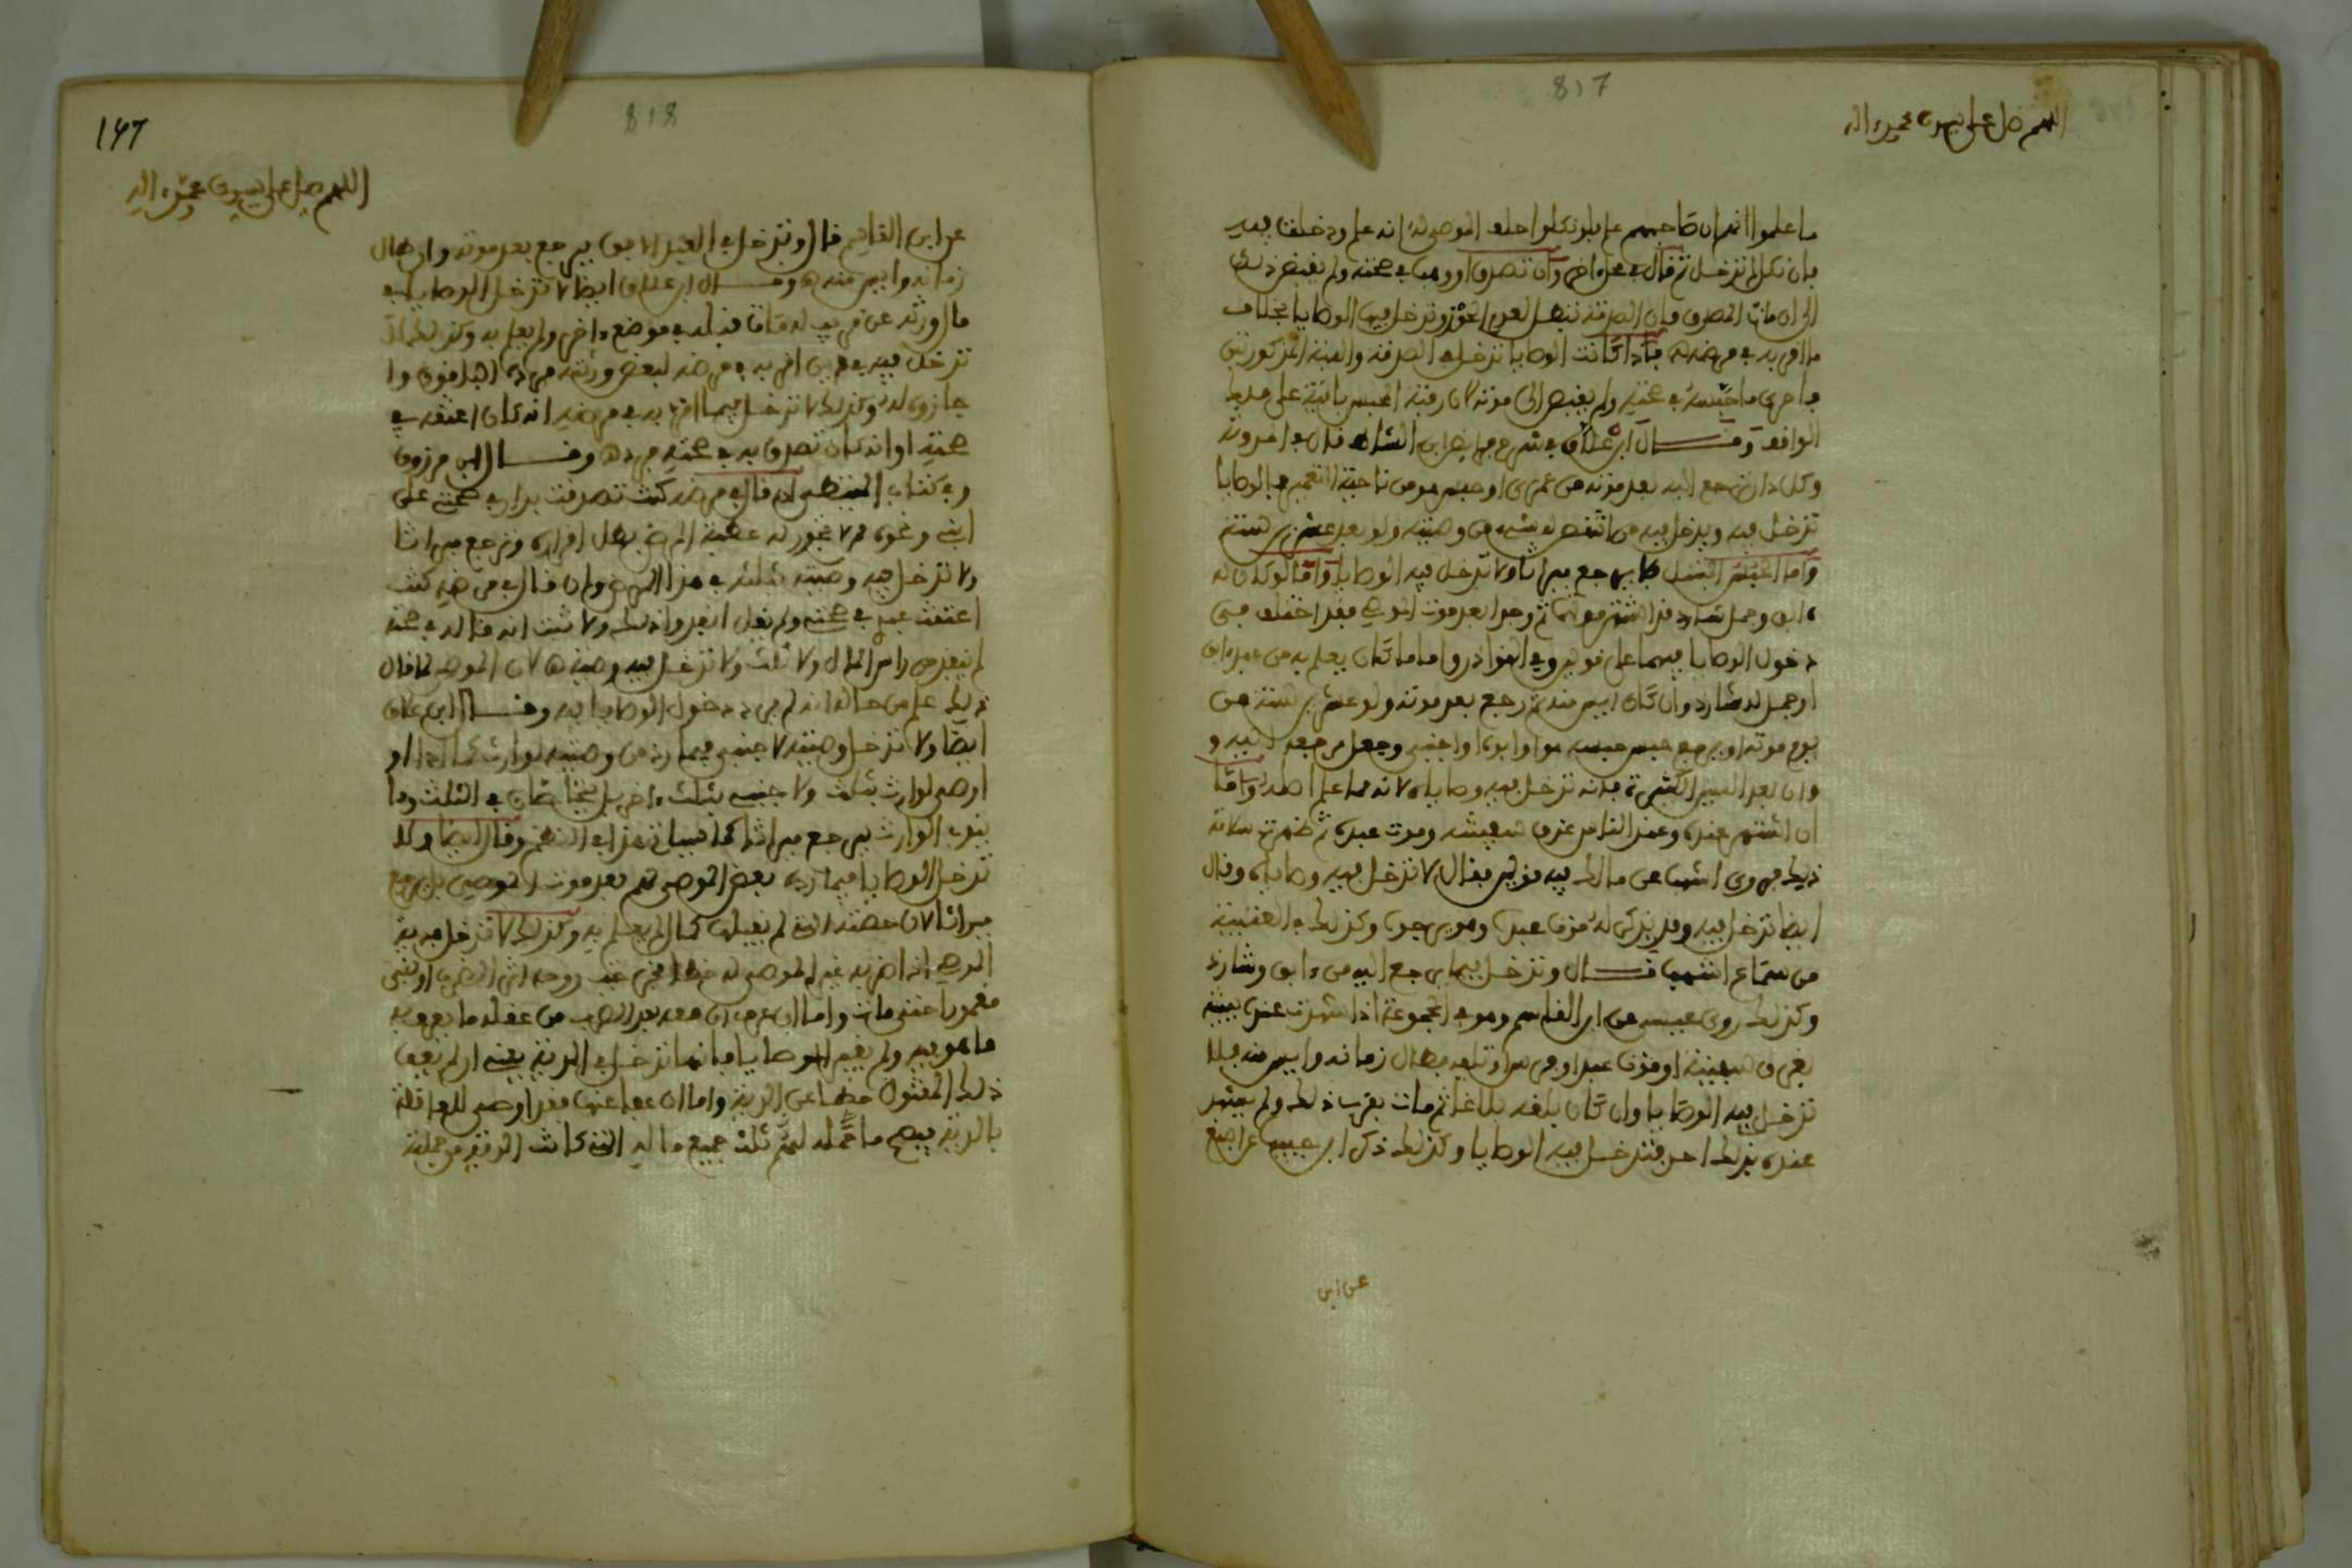 817
اللهم صل على سيدنا محمد وآله
ما علموا انهم ان صاحبهم علم فلو نكلوا حلف الموصى له انه علم ودخلت فيه
فان نكل لم تدخل ثم قال في محل اخر وان تصدق او وهب في صحته ولم يقبض ذلك
الى ان مات المصدق فان الصدقة تبطل لعدم الحوز وتدخل فيها الوصايا بخلاف
ما اقر به في مرضه فاذا كانت الوصايا تدخل في الصدقة والهبة المذكورتين
فاحرى ما حبسه في صحته ولم يقبض الى موته لان رقبة الحبس باقية على ملك
الواقف وقال ابن علاق في شرح فرائض ابن الشاط قال في المدونة
وكل دار ترجع اليه بعد موته من عمرى او حبس هو من ناحية التعمير فالوصايا
تدخل فيه ويدخل فيه من انتقص له شيء من وصيته ولو بعد عشرين سنة
واما الحبس البتل فلا يرجع ميراثا ولا تدخل فيه الوصايا واما لو كان له
ءابق وجمل شارد قد اشتهر موتهما ثم وجدا بعد موت الموصي فقد اختلف في
دخول الوصايا فيهما على قولين وفي النوادر واما ما كان يعلم به من عبد ءابق
او جمل له شارد وان كان ايس منه ثم رجع بعد موته ولو عشرين سنة من
يوم موته او يرجع حبس حبسه هو او ابوه او اجنبي وجعل مرجعه اليه و
وان بعد السنين الكثيرة فانه تدخل فيه وصاياه لانه مما علم اصله واما
ان اشتهر عنده وعند الناس غرق سفينته وموت عبده ثم ظهرت سلامة
ذلك فروى اشهب عن مالك فيه قولين فقال لا تدخل فيه وصاياه وقال
ايضا تدخل فيه وقد يذكر له موت عبده وهو يرجوه وكذلك في العتبية
من سماع اشهب قال وتدخل فيما يرجع اليه من ءابق وشارد
وكذلك روى عيسى عن ابن القاسم وهو في المجموعة اذا شهدت عنده بينة
بغرق سفينته او موت عبده او فرسه او تلفه فطال زمانه وايس منه فلا
تدخل فيه الوصايا وان كان بلغه بلاغا ثم مات بقرب ذلك ولم يشهد
عنده بذلك احد فتدخل فيه الوصايا وكذلك ذكر ابن حبيب عن اصبغ
عن ابن
147
818
اللهم صل على سيدنا محمد وءاله
عن ابن القاسم قال وتدخل في العبد الابق يرجع بعد موته وان طال
زمانه وايس منه وقال ابن علاق ايضا لا تدخل الوصايا في
مال ورثه عن قريب له مات قبله في موضع ءاخر ولم يعلم به وكذلك لا
تدخل فيه في دين اقر به في مرضه لبعض ورثته فردوه اهل او
جازوه له وكذلك لا تدخل فيما اقر به في مرضه انه كان اعتقه في
صحته او انه كان تصدق به في صحته فرد وقال ابن مرزوق
وفي كتاب ان قال في مرضه كنت تصدقت بداري في صحتي على
ابني ونحوه ممن لا تجوز له عطية المرض بطل اقراره وترجع ميراثا
ولا تدخل فيه وصيته ثلثه في هذا وان قال في مرضه كنت
اعتقت عبدي في صحتي ولم يقل انفذوا ذلك ولا ثبت انه قاله في صحته
لم ينفذ من راس المال ولا ثلث ولا تدخل فيه وصيته لان الموصي لما قال
ذلك علم من حاله انه لم يرد دخول الوصايا فيه وقال ابن علاق
ايضا ولا تدخل وصيته لاجنبي فيما رد من وصيته لوارث كما اذا
اوصى لوارث بثلث ولاجنبي بثلث ءاخر بل يتحاصان في الثلث وما
ينوب الوارث يرجع ميراثا كما سياتي هذا في النظم وقال ايضا ولا
تدخل الوصايا فيما رده بعض الموصى لهم بعد موت الموصي بل يرجع
ميراثا لان حصته التي لم يقبلها كمال لم يعلم به وكذلك لا تدخل في دية
الموصي اذا ضربه غير الموصى له خطأ فخرجت روحه اثر الضرب او بقي
مغمورا حتى مات واما ان عرف ان معه بعد الضرب من عقله ما يعرف به
ما هو فيه ولم يغير الوصايا فانها تدخل في الدية يعني ان لم يعف
ذلك المقتول خطأ عن الدية واما ان عفا عنها فقد اوصى للعاقلة
بالدية فيصح ما حمله لهم ثلث جميع ماله التي كانت الدية من جملته